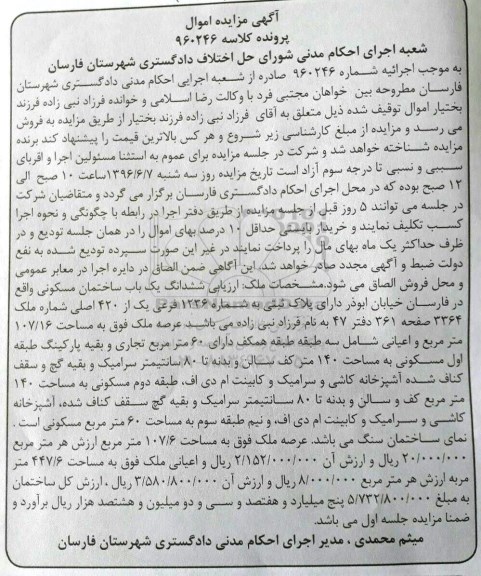 آگهی مزایده اموال
پرونده کلاسه ۹۶۰۲۴۶
شعبه اجرای احکام مدنی شورای حل اختلاف دادگستری شهرستان فارسان
به موجب اجرائیه شماره ۹۶۰۲۴۶ صادره از شعبه اجرایی احکام مدنی دادگستری شهرستان
فارسان مطروحه بین خواهان مجتبی فرد با وکالت رضا اسلامی و خوانده فرزاد نبی زاده فرزند
بختیار اموال توقیف شده ذیل متعلق به آقای فرزاد نبی زاده فرزند بختیار از طریق مزایده به فروش
می رسد و مزایده از مبلغ کارشناسی زیر شروع و هر کس بالاترین قیمت را پیشنهاد کند برنده
مزایده شناخته خواهد شد و شرکت در جلسه مزایده برای عموم به استثنا مسئولین اجرا و اقربای
سببی و نسبی تا درجه سوم آزاد است تاریخ مزایده روز سه شنبه ۱۳۹۶/۶/۷ساعت ۱۰ صبح الی
۱۲ صبح بوده که در محل اجرای احکام دادگستری فارسان برگزار می گردد و متقاضیان شرکت
در جلسه می توانند ۵ روز قبل از جلسه مزایده از طریق دفتر اجرا در رابطه با چگونگی و نحوه اجرا
کسب تکلیف نمایند و خریدار بایستی حداقل ۱۰ درصد بهای اموال را در همان جلسه تودیع و در
ظرف حداکثر یک ماه بهای مال را پرداخت نمایند در غیر این صورت سپرده تودیع شده به نفع
دولت ضبط و آگهی مجدد صادر خواهد شد. این آگاهی ضمن الصاق در دایره اجرا در معابر عمومی
و محل فروش الصاق می شود.مشخصات ملک: ارزیابی ششدانگ یک باب ساختمان مسکونی واقع
در فارسان خیابان ابوذر دارای پلاک ثبتی به شماره ۱۲۳۶ فرعی یک از ۴۲۰ اصلی شماره ملک
۳۳۶۴ صفحه ۳۶۱ دفتر ۴۷ به نام فرزاد نبی زاده می باشد. عرصه ملک فوق به مساحت ۱۰۷/۱۶
متر مربع و اعیانی شامل سه طبقه طبقه همکف دارای ۶۰ متر مربع تجاری و بقیه پارکینگ طبقه
اول مسکونی به مساحت ۱۴۰ متر کف سالن و بدنه تا ۸۰ سانتیمتر سرامیک و بقیه گچ و سقف
کناف شده آشپزخانه کاشی و سرامیک و کابینت ام دی اف، طبقه دوم مسکونی به مساحت ۱۴۰
متر مربع کف و سالن و بدنه تا ۸۰ سانتیمتر سرامیک و بقیه گچ سقف کناف شده، آشپزخانه
کاشی و سرامیک و کابینت ام دی اف، و نیم طبقه سوم به مساحت ۶۰ متر مربع مسکونی است .
نمای ساختمان سنگ می باشد. عرصه ملک فوق به مساحت ۱۰۷/۶ متر مربع ارزش هر متر مربع
۲۰/۰۰۰/۰۰۰ ریال و ارزش آن ۲/۱۵۲/۰۰۰/۰۰۰ ریال و اعیانی ملک فوق به مساحت ۴۴۷/۶ متر
مربه ارزش هر متر مربع ۸/۰۰۰/۰۰۰ ریال و ارزش آن ۳/۵۸۰/۸۰۰/۰۰۰ ریال ، ارزش کل ساختمان
به مبلغ ۵/۷۳۲/۸۰۰/۰۰۰ پنج میلیارد و هفتصد و سی و دو میلیون و هشتصد هزار ریال برآورد و
ضمنا مزایده جلسه اول می باشد.
میثم محمدی ، مدیر اجرای احکام مدنی دادگستری شهرستان فارسان